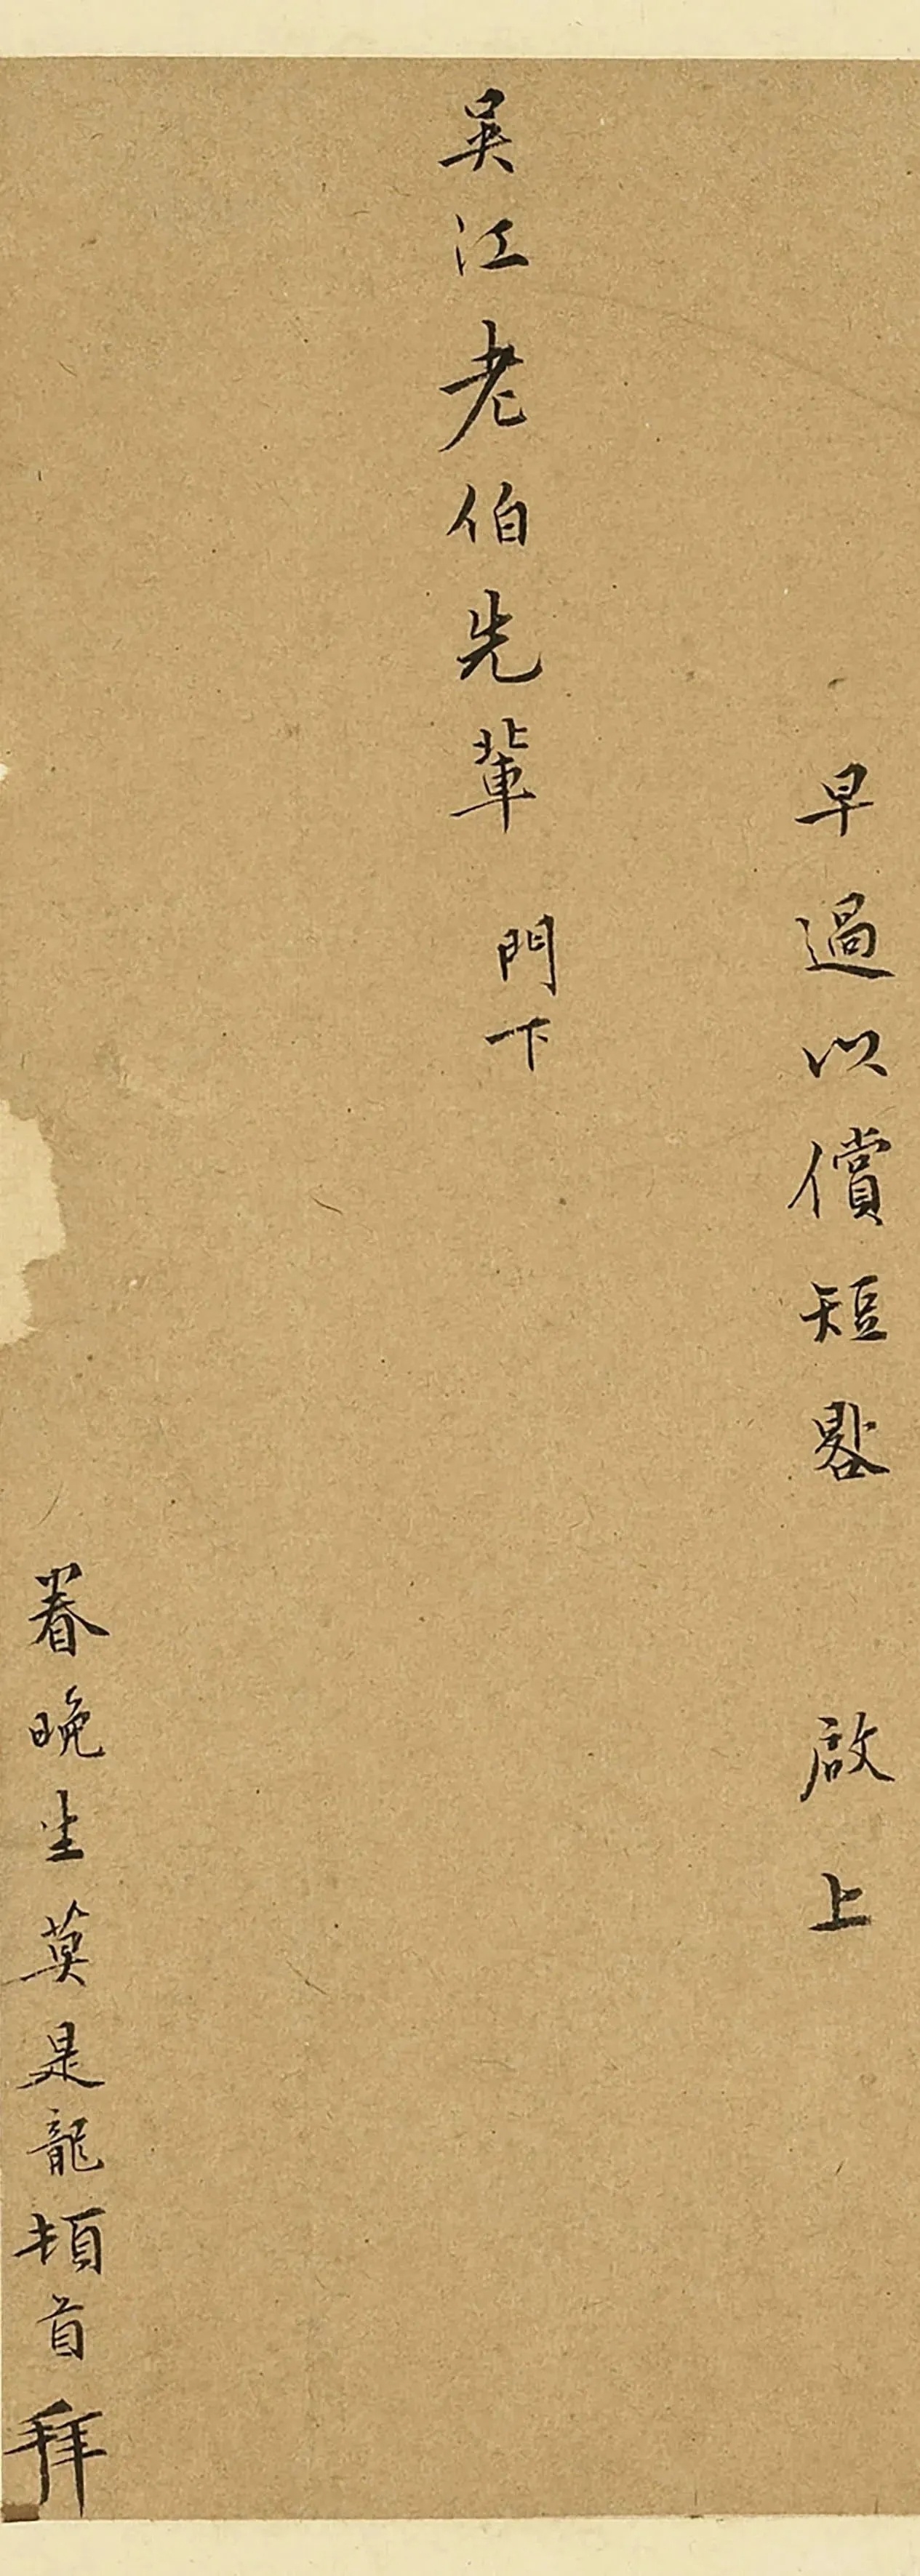 早過以償短晷　啟上
吳江老伯先輩　門下
眷晚生莫是龍頓首拜